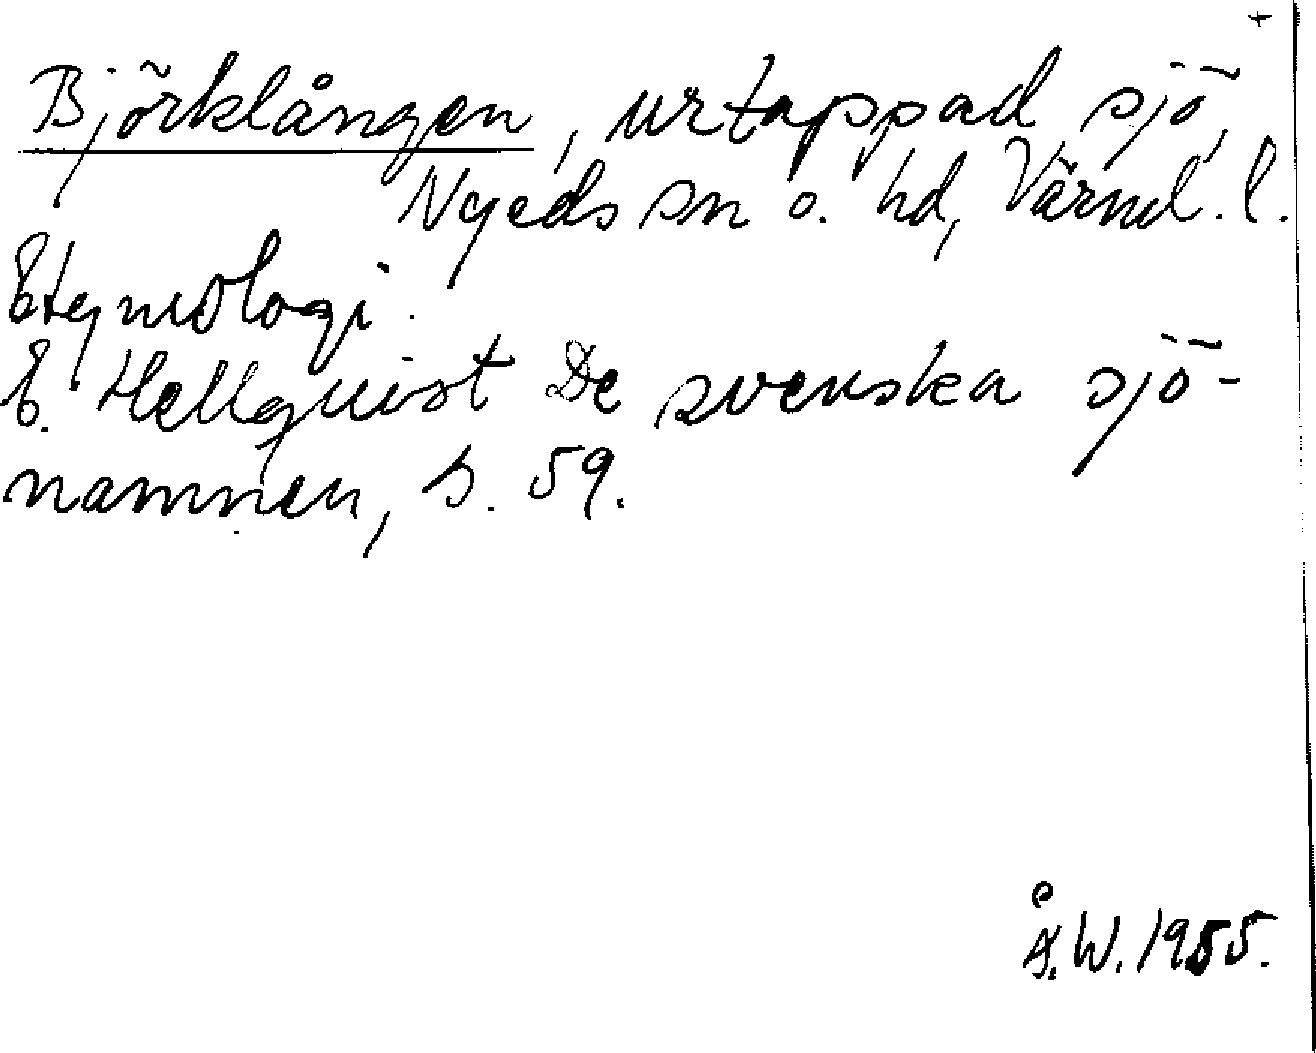 +
Björklången, urtappad sjö,
Nyeds sn o. hd, Värml. l.
Etymologi.
E. Hellquist De svenska sjö-
namnen, s. 59.
Å.W. 1955.